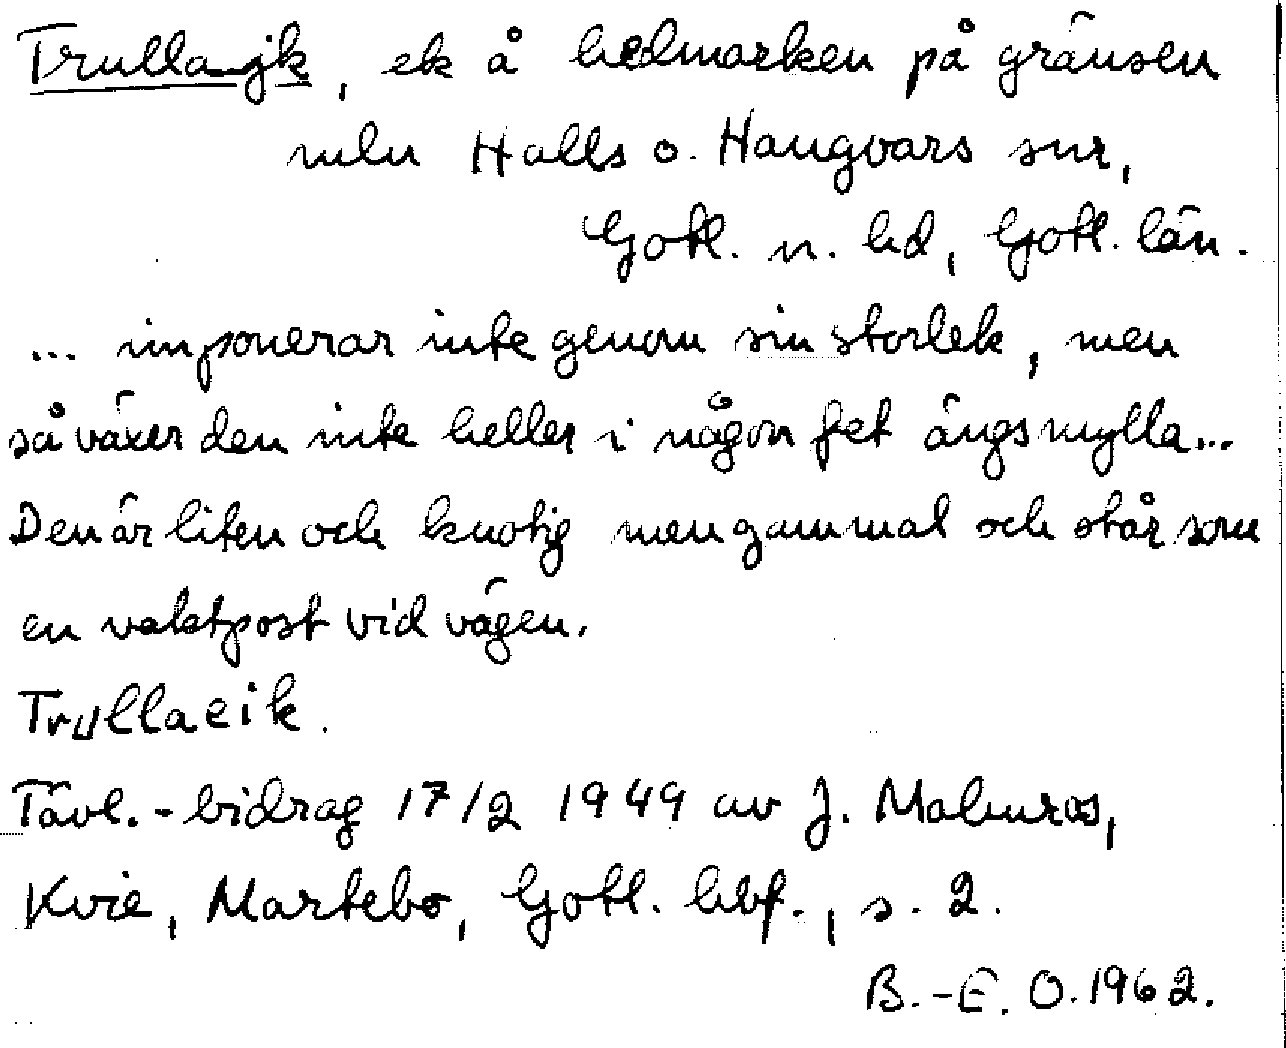 Trullajk, ek å hedmarken på gränsen
mln Halls o. Hangvars snr,
Gotl. n. hd, Gotl. län.
... imponerar inte genom sin storlek, men
så växer den inte heller i någon fet ängsmylla...
Den är liten och knotig men gammal och står som
en vaktpost vid vägen.
Trullaeik.
Tävl.-bidrag 17/2 1949 av J. Malmros,
Kvie, Martebo, Gotl. hbf., s. 2.
B.-E. O. 1962.